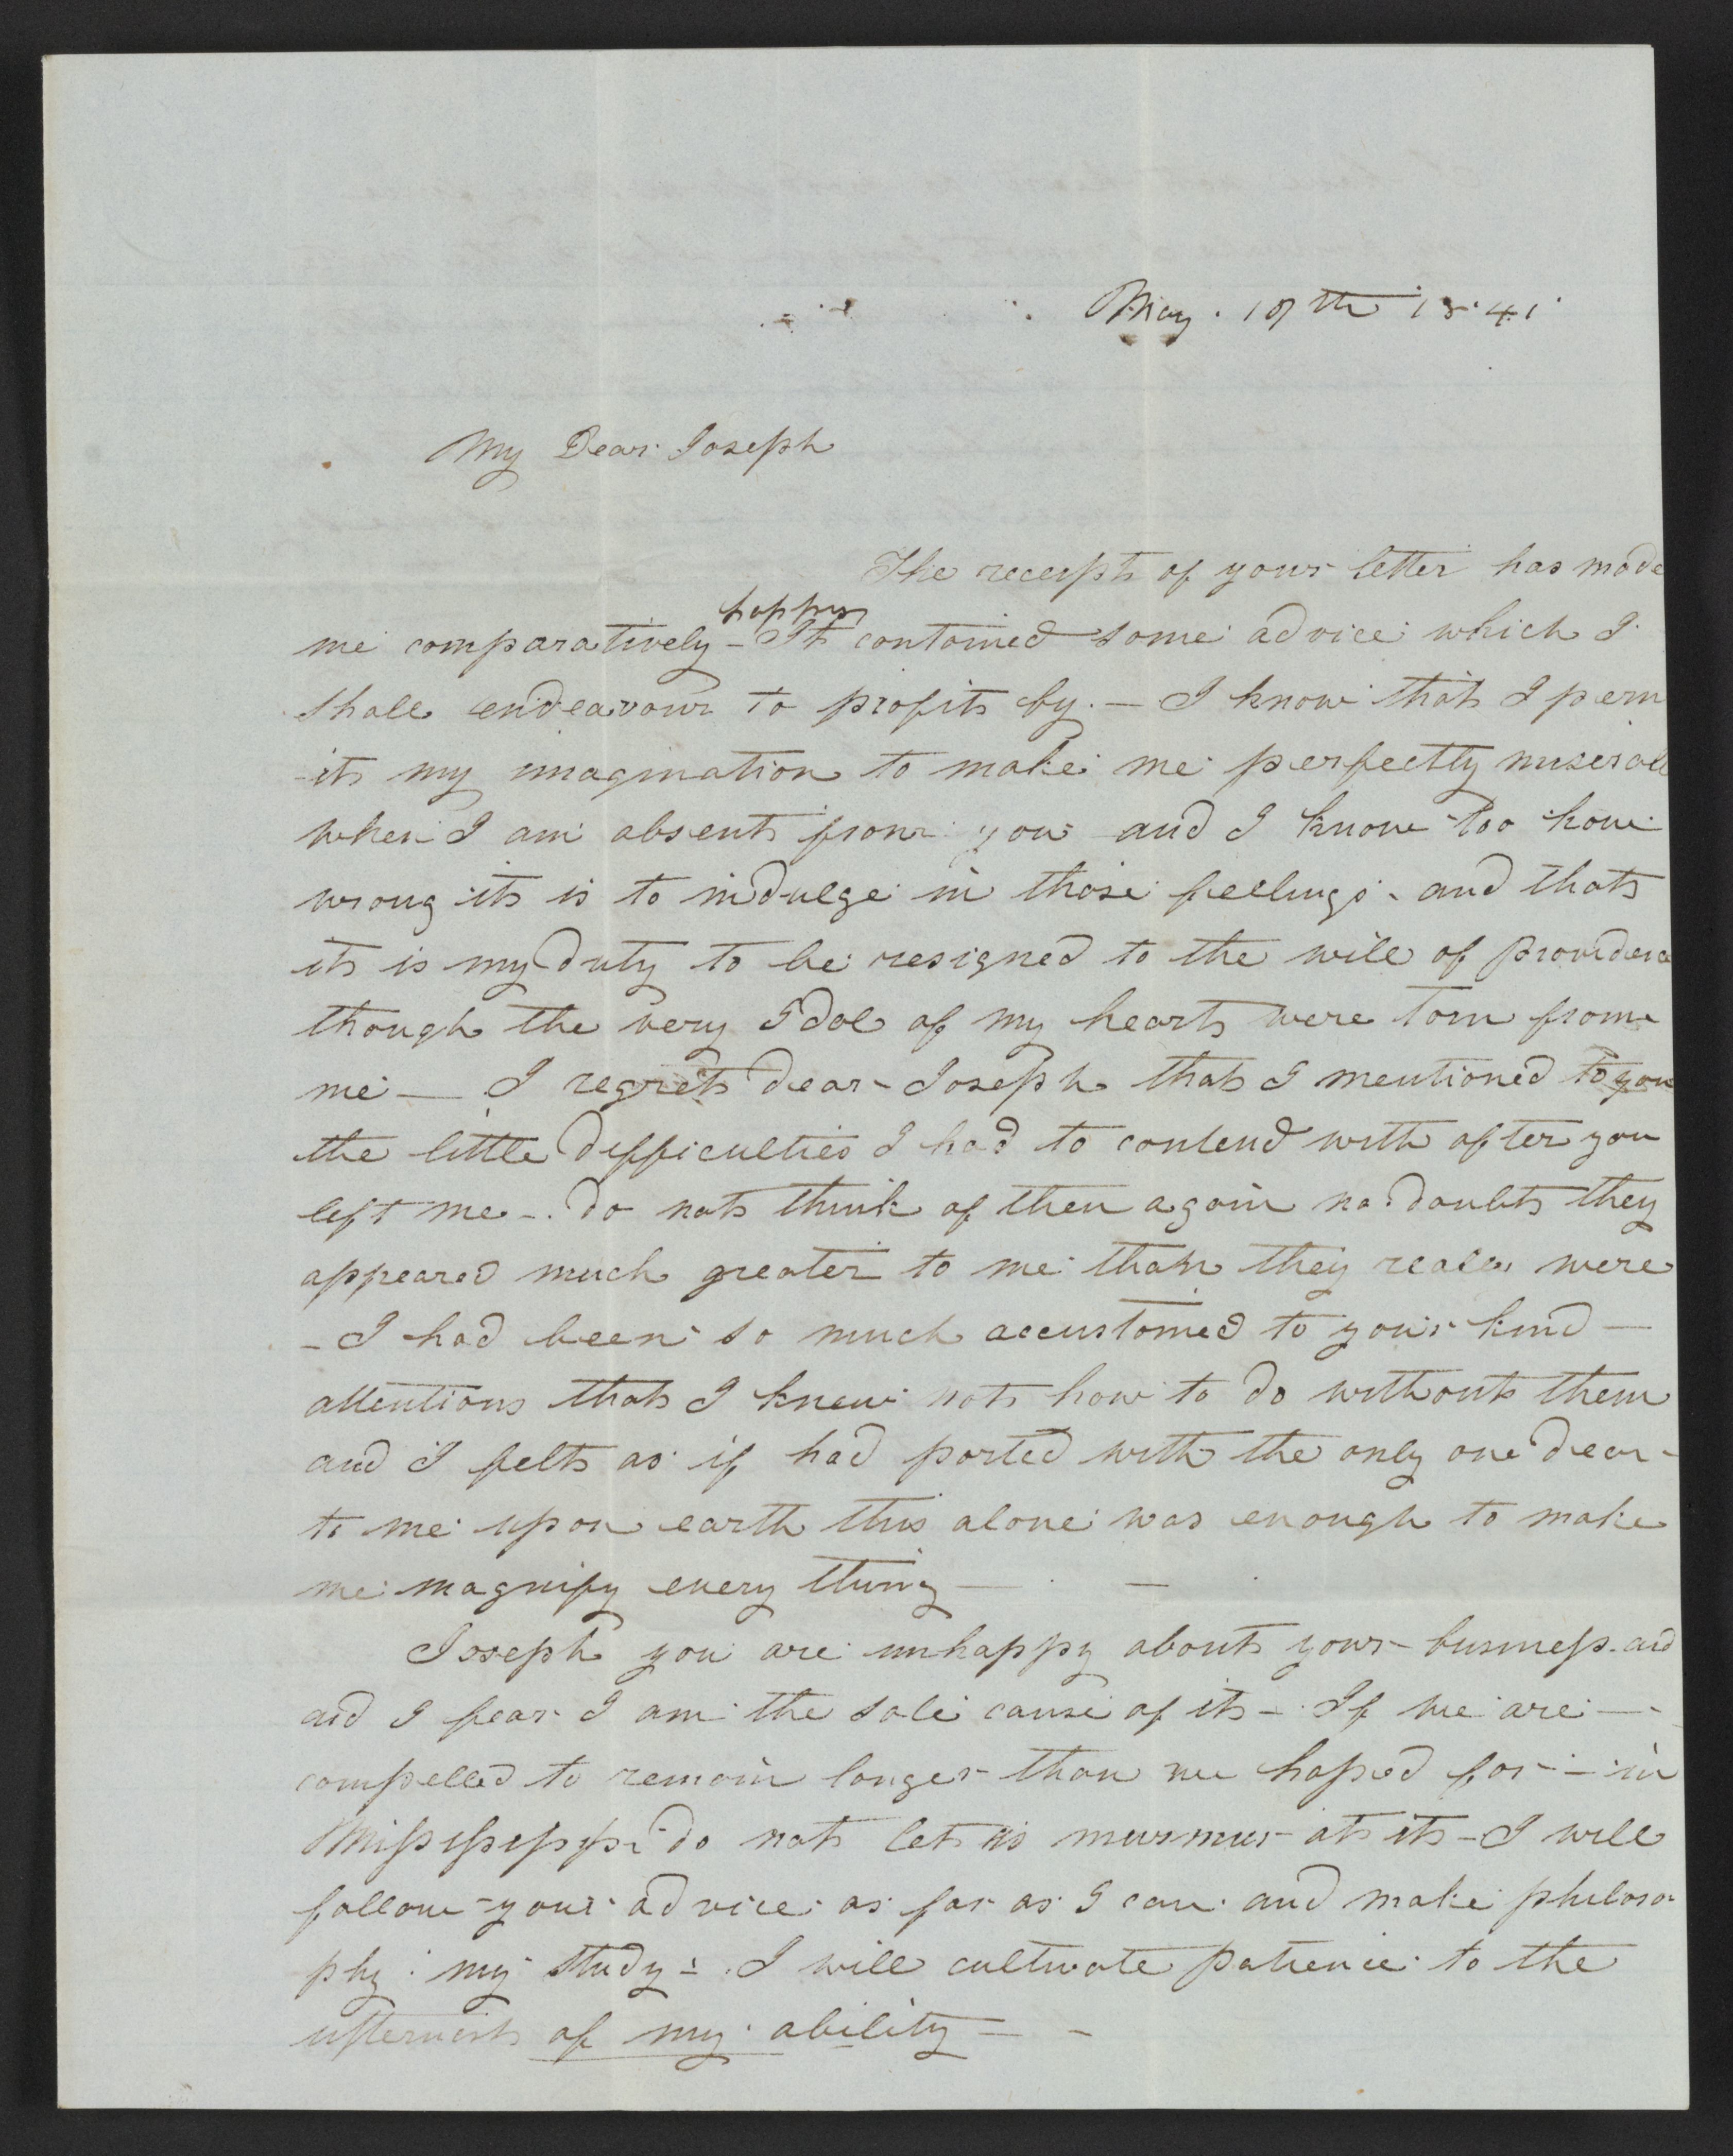 May. 17th 1841
My Dear Joseph
The receipt of your letter has made
happy
me comparatively - It contained some advice which I
shall endeavour to profit by. — I know that I perm
-it my imagination to make me perfectly miserabl
when I am absent from you and I know too how
wrong it is to indulge in those feelings - and that
it is my duty to be resigned to the will of providence
though the very Idol of my heart were torn from
me — I regret dear Joseph that I mentioned to you
the little difficulties I had to contend with after you
left me - do not think of them again no doubt they
appeared much greater to me than they really were
- I had been so much accustomed to your kind —
attentions that I knew not how to do without them
and I felt as if had parted with the only one dear -
to me upon earth this alone was enough to make
me magnify every thing — —
Joseph you are unhappy about your business and
and I fear I am the sole cause of it - If we are —
compelled to remain longer than we hoped for - in
Missississippi do not let us murmur at it - I will
follow your advice as far as I can and make philoso-
phy my study - I will cultivate patience to the
uttermost of my ability — -